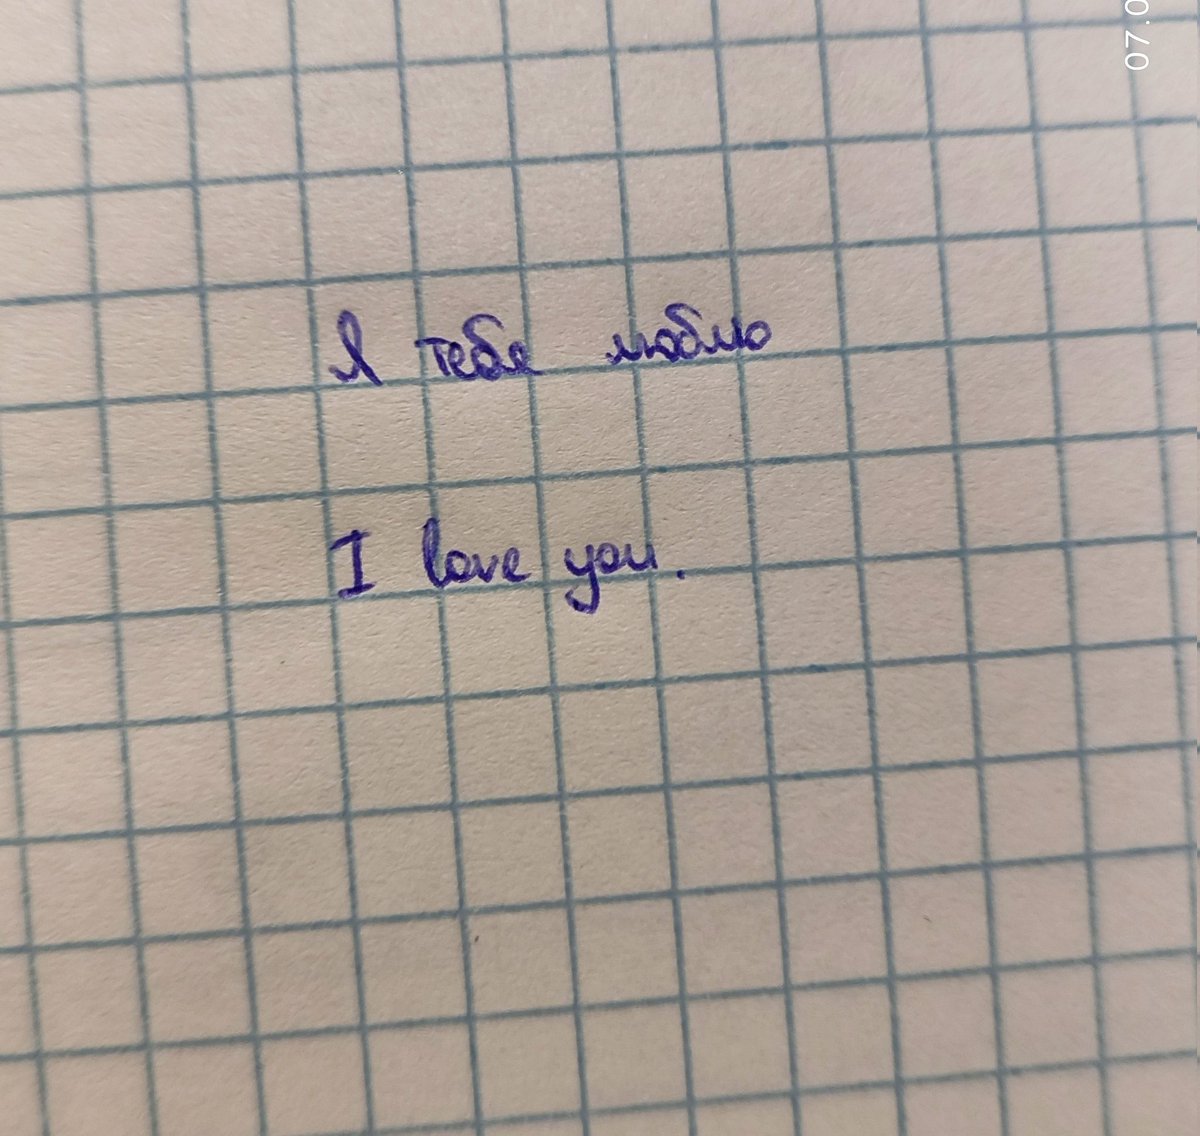 Я тебе люблю
I love you.
07.0